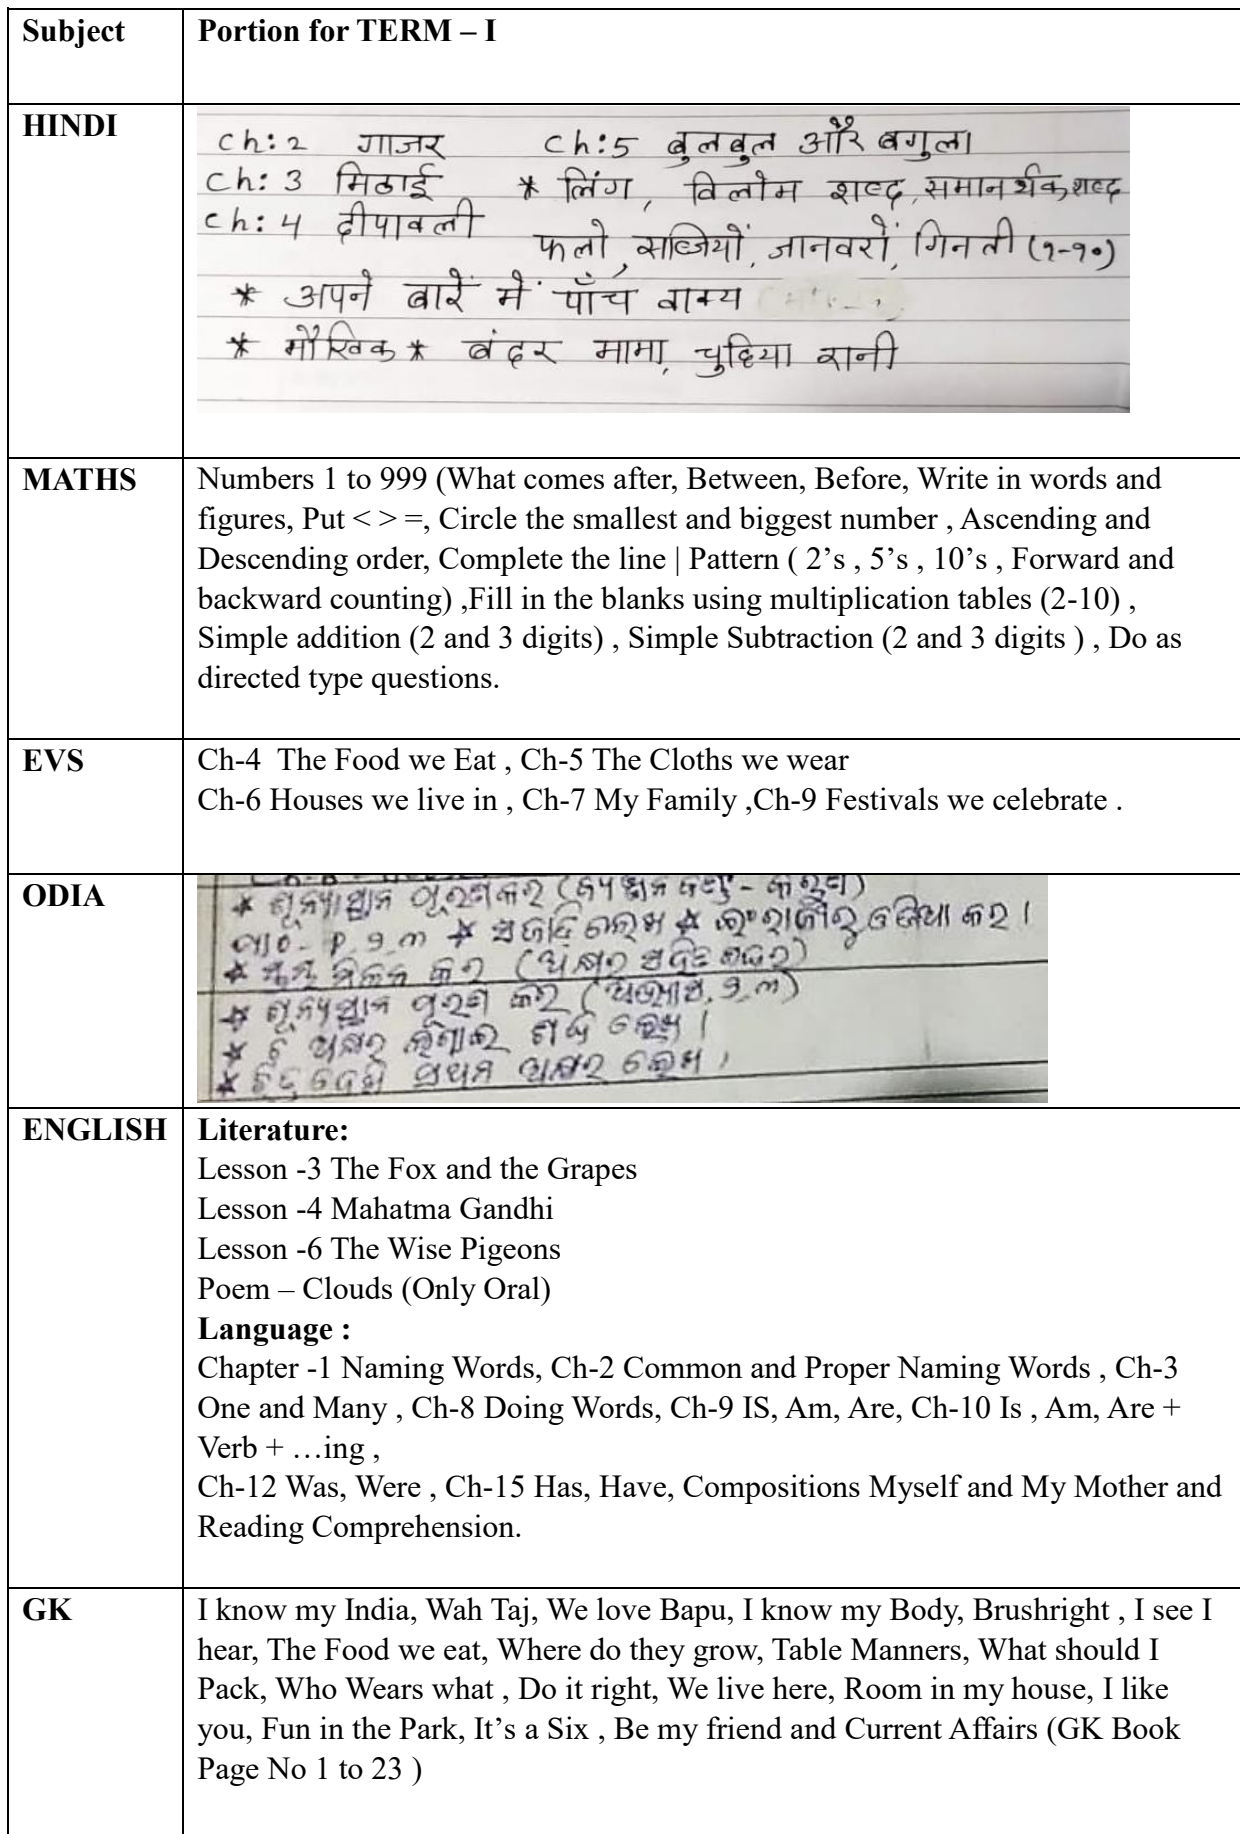 Subject
Portion for TERM – I
HINDI
ch:2 गाजर ch:5 बुलबुल और बगुला
ch: 3 मिठाई * लिंग, विलोम शब्द, समानर्थक शब्द
ch: 4 दीपावली
फलो, सब्जियों, जानवरों, गिनती (१-१०)
* अपने बारें में पाँच वाक्य
* मौखिक * बंदर मामा, चुहिया रानी
MATHS
Numbers 1 to 999 (What comes after, Between, Before, Write in words and
figures, Put < > =, Circle the smallest and biggest number , Ascending and
Descending order, Complete the line | Pattern ( 2’s , 5’s , 10’s , Forward and
backward counting) ,Fill in the blanks using multiplication tables (2-10) ,
Simple addition (2 and 3 digits) , Simple Subtraction (2 and 3 digits ) , Do as
directed type questions.
EVS
Ch-4 The Food we Eat , Ch-5 The Cloths we wear
Ch-6 Houses we live in , Ch-7 My Family ,Ch-9 Festivals we celebrate .
ODIA
* ଶୂନ୍ୟସ୍ଥାନ ପୂରଣ କର
* ଇଂରାଜୀରୁ ଓଡ଼ିଆ କର ।
ମିଳନ କର
* ଶୂନ୍ୟସ୍ଥାନ ପୂରଣ କର
ଅକ୍ଷର ଲଗାଇ ଶବ୍ଦ ଲେଖ ।
* ଚିତ୍ର ଦେଖି ପ୍ରଥମ ଅକ୍ଷର ଲେଖ ।
ENGLISH
Literature:
Lesson -3 The Fox and the Grapes
Lesson -4 Mahatma Gandhi
Lesson -6 The Wise Pigeons
Poem – Clouds (Only Oral)
Language :
Chapter -1 Naming Words, Ch-2 Common and Proper Naming Words , Ch-3
One and Many , Ch-8 Doing Words, Ch-9 IS, Am, Are, Ch-10 Is , Am, Are +
Verb + …ing ,
Ch-12 Was, Were , Ch-15 Has, Have, Compositions Myself and My Mother and
Reading Comprehension.
GK
I know my India, Wah Taj, We love Bapu, I know my Body, Brushright , I see I
hear, The Food we eat, Where do they grow, Table Manners, What should I
Pack, Who Wears what , Do it right, We live here, Room in my house, I like
you, Fun in the Park, It’s a Six , Be my friend and Current Affairs (GK Book
Page No 1 to 23 )